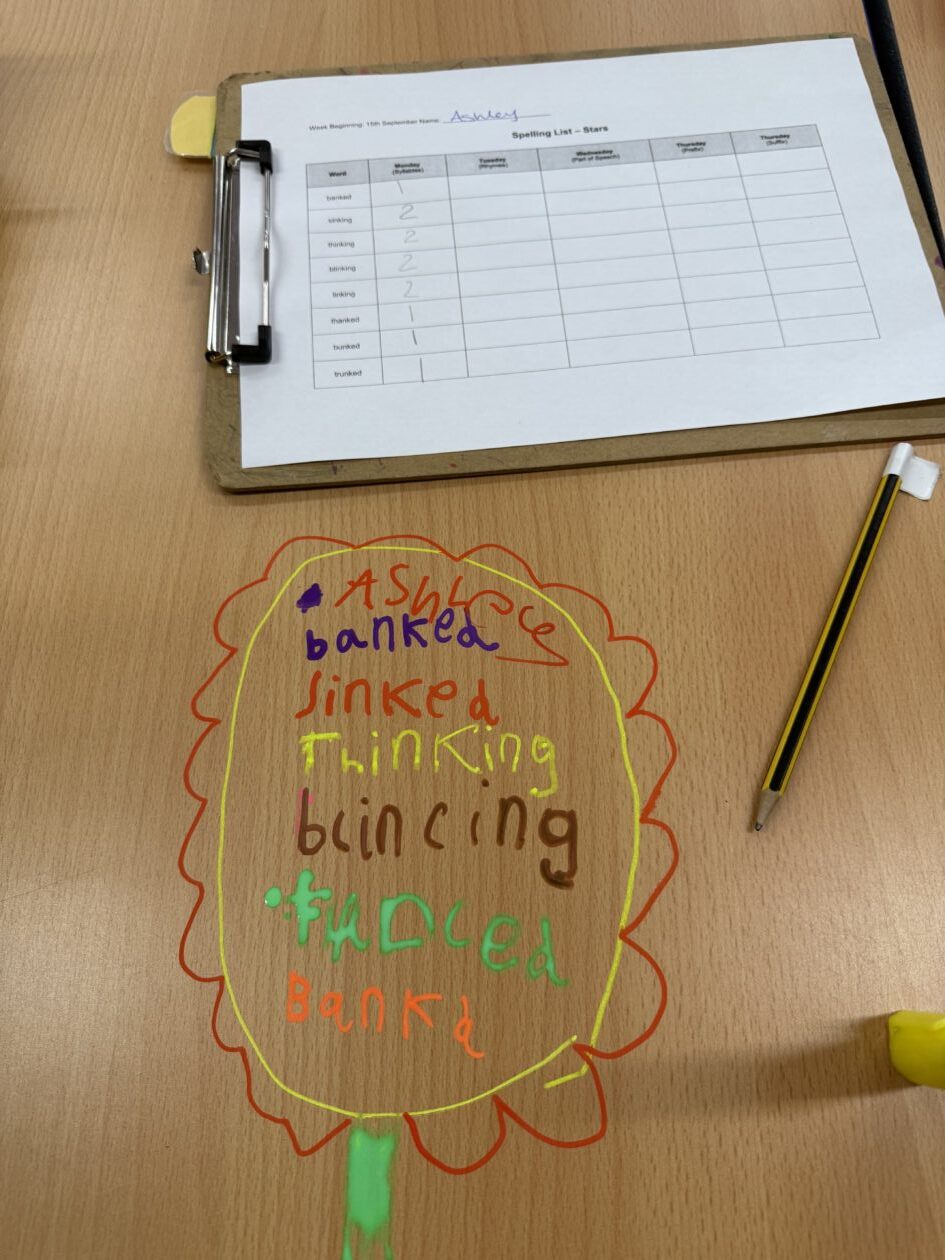 Week Beginning: 15th September Name: Ashley
Spelling List – Stars
Word Monday (Syllables) Tuesday (Rhymes) Wednesday (Part of Speech) Thursday (Prefix) Thursday (Suffix)
banked 1
sinking 2
thinking 2
blinking 2
linking 2
thanked 1
bunked 1
trunked 1
ASHLee
banked
sinked
Thinking
blincing
thanced
Bankd